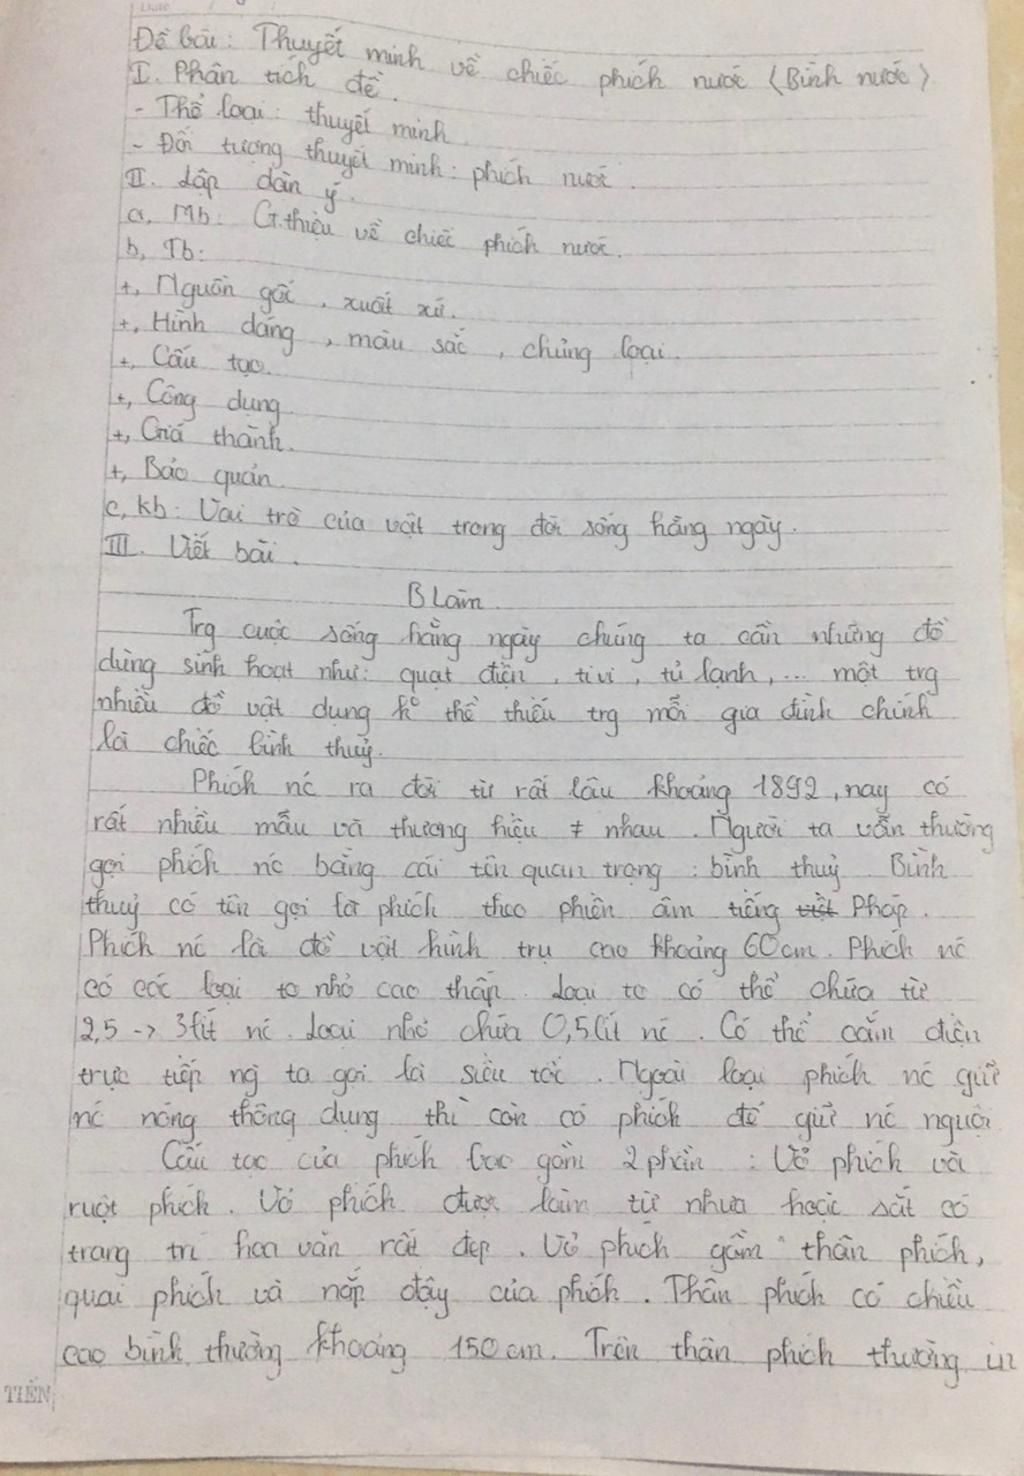 Đề bài: Thuyết minh về chiếc phích nước (Bình nước)
I. Phân tích đề.
- Thể loại: thuyết minh
- Đối tượng thuyết minh: phích nước.
II. Lập dàn ý.
a, Mb: G.thiệu về chiếc phích nước.
b, Tb:
+, Nguồn gốc, xuất xứ.
+, Hình dáng, màu sắc, chủng loại.
+, Cấu tạo.
+, Công dụng
+, Giá thành.
+, Bảo quản.
c, kb: Vai trò của vật trong đời sống hằng ngày.
III. Viết bài.
B Làm
Trg cuộc sống hằng ngày chúng ta cần những đồ
dùng sinh hoạt như: quạt điện, tivi, tủ lạnh,... một trg
nhiều đồ vật dụng ko thể thiếu trg mỗi gia đình chính
là chiếc bình thuỷ.
Phích nc ra đời từ rất lâu khoảng 1892, nay có
rất nhiều mẫu và thương hiệu ≠ nhau. Người ta vẫn thường
gọi phích nc bằng cái tên quan trọng: bình thuỷ. Bình
thuỷ có tên gọi là phích theo phiên âm tiếng việt Pháp.
Phích nc là đồ vật hình trụ cao khoảng 60cm. Phích nc
có các loại to nhỏ cao thấp. Loại to có thể chứa từ
2,5 -> 3lít nc. Loại nhỏ chứa 0,5lít nc. Có thể cắm điện
trực tiếp ng ta gọi là siêu tốc. Ngoài loại phích nc giữ
nc nóng thông dụng thì còn có phích để giữ nc nguội
Cấu tạo của phích bao gồm 2 phần: Vỏ phích và
ruột phích. Vỏ phích được làm từ nhựa hoặc sắt có
trang trí hoa văn rất đẹp. Vỏ phích gồm thân phích,
quai phích và nắp đậy của phích. Thân phích có chiều
cao bình thường khoảng 150cm. Trên thân phích thường in
TIẾN